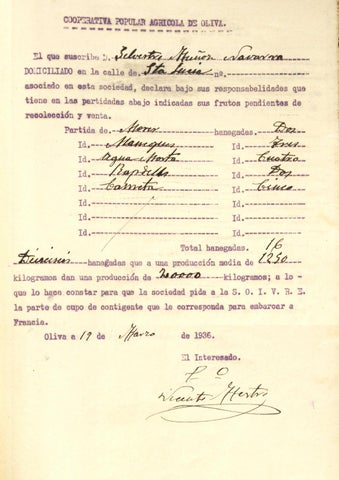 COOPERATIVA POPULAR AGRICOLA DE OLIVA.
El que suscribe D. Silvestre Muñoz Navarro
DOMICILIADO en la calle de Sta Lucia nº.
asociado en esta sociedad, declara bajo sus responsabelidades que
tiene en las partidadas abajo indicadas sus frutos pendientes de
recolección y venta.
Partida de Morer hanegadas. Dos
Id. Marques Id. Tres
Id. Agua Morta Id. Cuatro
Id. Rapdells Id. Dos
Id. Carreta Id. Cinco
Id. Id.
Id. Id.
Total hanegadas. 16
Dieciseis hanegadas que a una producción media de 1250
kilogramos dan una producción de 20000 kilogramos; a lo
que lo hace constar para que la sociedad pida a la S. O. I. V. R. E.
la parte de cupo de contigente que la corresponda para embarcar a
Francia.
Oliva a 19 de Marzo de 1936.
El Interesado.
P. O
Vicente